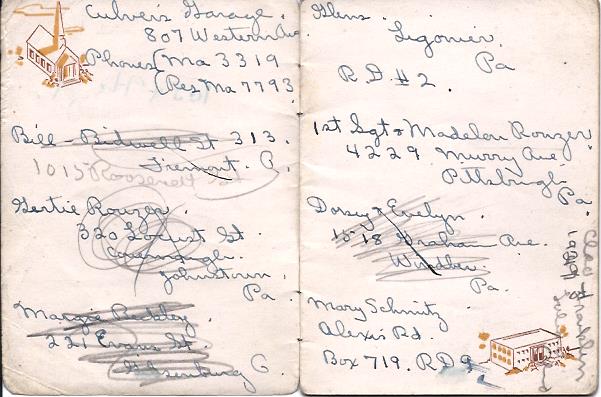 Culver's Garage.
807 Western Ave
Phones (Ma 3319
(Res. Ma 7793
Bill - Bidwell St 313.
Fremont. O.
1015 Roosevelt
Gertie Rouzer.
320 Locust St.
Johnstown,
Pa.
Margie
221 St.
O.
Glens.
Ligonier.
Pa
R.D. #2.
1st Sgt & Madelon Rouzer
4229 Murry Ave.
Pittsburgh
Pa
Dorsey & Evelyn.
1518 Graham Ave.
Windber.
Pa.
Mary Schmitz
Alexis Rd.
Box 719. R D 9
Franklin